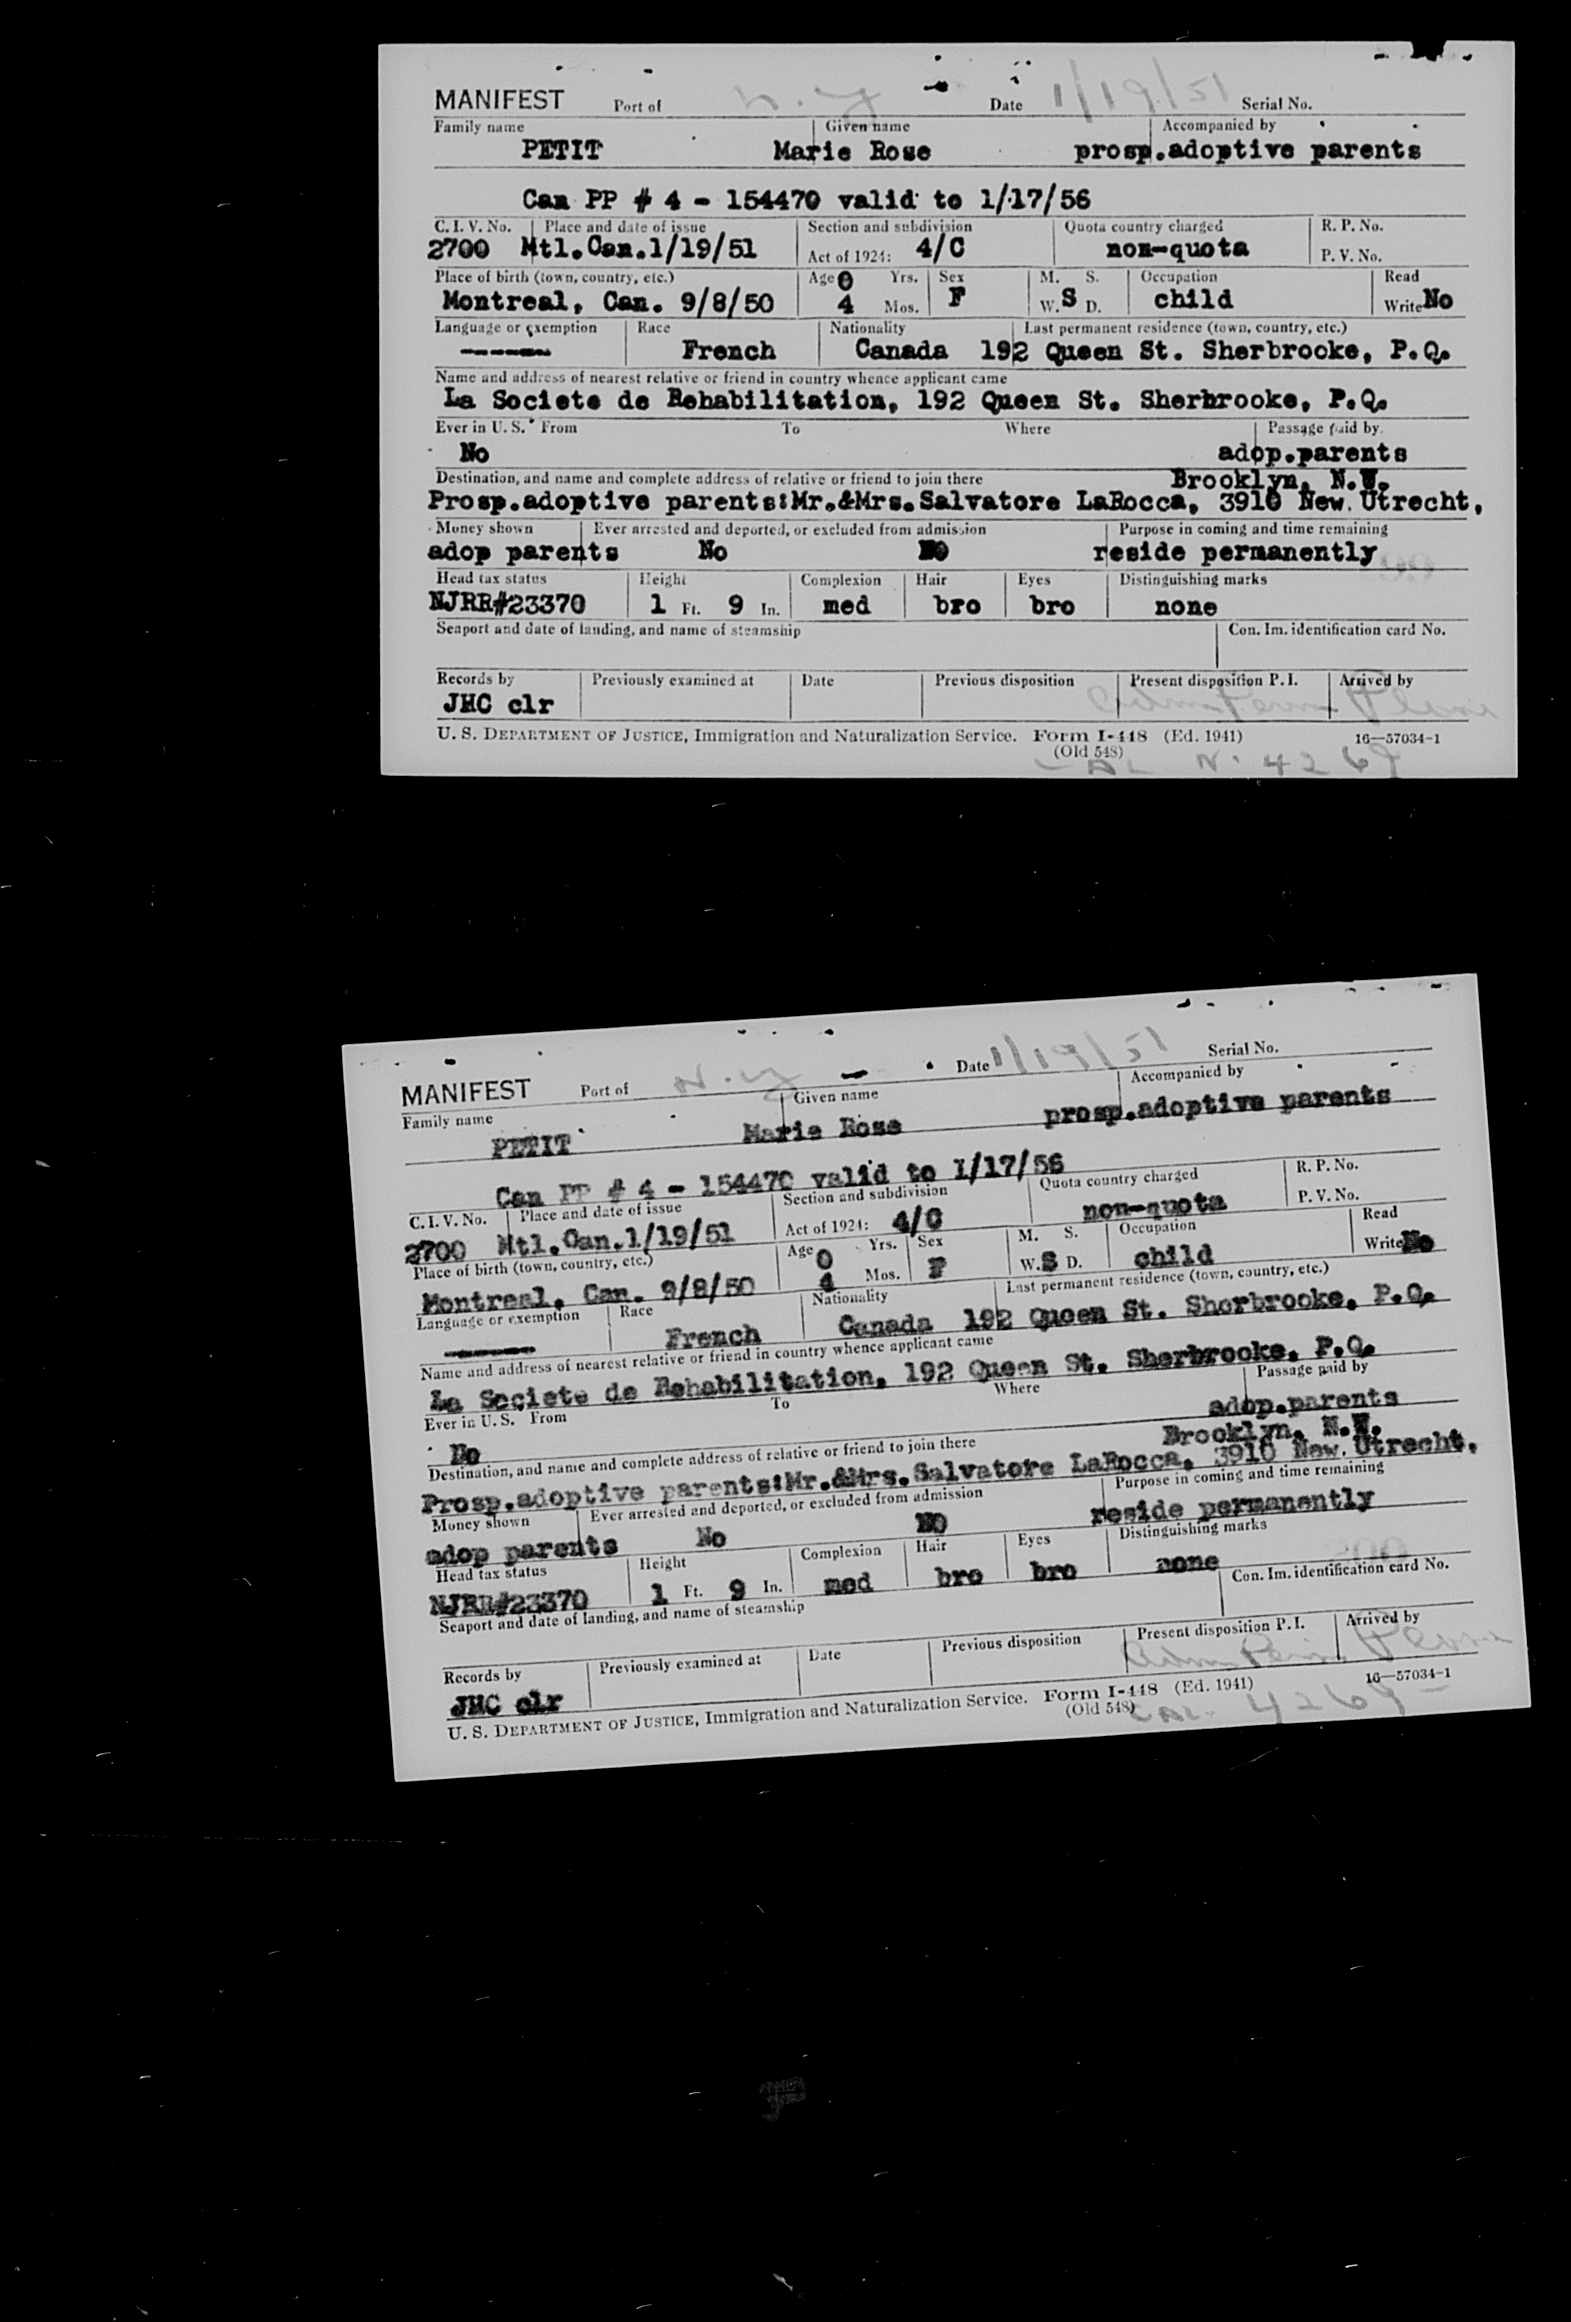 MANIFEST Port of N.Y Date 1/19/51 Serial No.
Family name Given name Accompanied by
PETIT Marie Rose prosp.adoptive parents
Can PP # 4 - 154470 valid to 1/17/56
C. I. V. No. Place and date of issue Section and subdivision Quota country charged R. P. No.
2700 Mtl.Can.1/19/51 Act of 1924: 4/C non-quota P. V. No.
Place of birth (town, country, etc.) Age 0 Yrs. Sex M. S. Occupation Read
Montreal, Can. 9/8/50 4 Mos. F W. S D. child Write No
Language or exemption Race Nationality Last permanent residence (town, country, etc.)
------- French Canada 192 Queen St. Sherbrooke, P.Q.
Name and address of nearest relative or friend in country whence applicant came
La Societe de Rehabilitation, 192 Queen St. Sherbrooke, P.Q.
Ever in U. S. From To Where Passage paid by
No adop.parents
Destination, and name and complete address of relative or friend to join there Brooklyn, N.Y.
Prosp.adoptive parents:Mr.&Mrs.Salvatore LaRocca, 3910 New Utrecht,
Money shown Ever arrested and deported, or excluded from admission Purpose in coming and time remaining
adop parents No NO reside permanently
Head tax status Height Complexion Hair Eyes Distinguishing marks
NJRR#23370 1 Ft. 9 In. med bro bro none
Seaport and date of landing, and name of steamship Con. Im. identification card No.
Records by Previously examined at Date Previous disposition Present disposition P. I. Arrived by
JHC clr Adm Perm Plane
U. S. DEPARTMENT OF JUSTICE, Immigration and Naturalization Service. Form I-448 (Ed. 1941) 16—57034-1
(Old 548)
4269
MANIFEST Port of N.Y Date 1/19/51 Serial No.
Family name Given name Accompanied by
PETIT Marie Rose prosp.adoptive parents
Can PP # 4 - 154470 valid to 1/17/56
C. I. V. No. Place and date of issue Section and subdivision Quota country charged R. P. No.
2700 Mtl.Can.1/19/51 Act of 1924: 4/C non-quota P. V. No.
Place of birth (town, country, etc.) Age 0 Yrs. Sex M. S. Occupation Read
Montreal, Can. 9/8/50 4 Mos. F W. S D. child Write No
Language or exemption Race Nationality Last permanent residence (town, country, etc.)
------- French Canada 192 Queen St. Sherbrooke, P.Q.
Name and address of nearest relative or friend in country whence applicant came
La Societe de Rehabilitation, 192 Queen St. Sherbrooke, P.Q.
Ever in U. S. From To Where Passage paid by
No adop.parents
Destination, and name and complete address of relative or friend to join there Brooklyn, N.Y.
Prosp.adoptive parents:Mr.&Mrs.Salvatore LaRocca, 3910 New Utrecht,
Money shown Ever arrested and deported, or excluded from admission Purpose in coming and time remaining
adop parents No NO reside permanently
Head tax status Height Complexion Hair Eyes Distinguishing marks
NJRR#23370 1 Ft. 9 In. med bro bro none
Seaport and date of landing, and name of steamship Con. Im. identification card No.
Records by Previously examined at Date Previous disposition Present disposition P. I. Arrived by
JHC clr Adm Perm Plane
U. S. DEPARTMENT OF JUSTICE, Immigration and Naturalization Service. Form I-448 (Ed. 1941) 16—57034-1
(Old 548)
4269